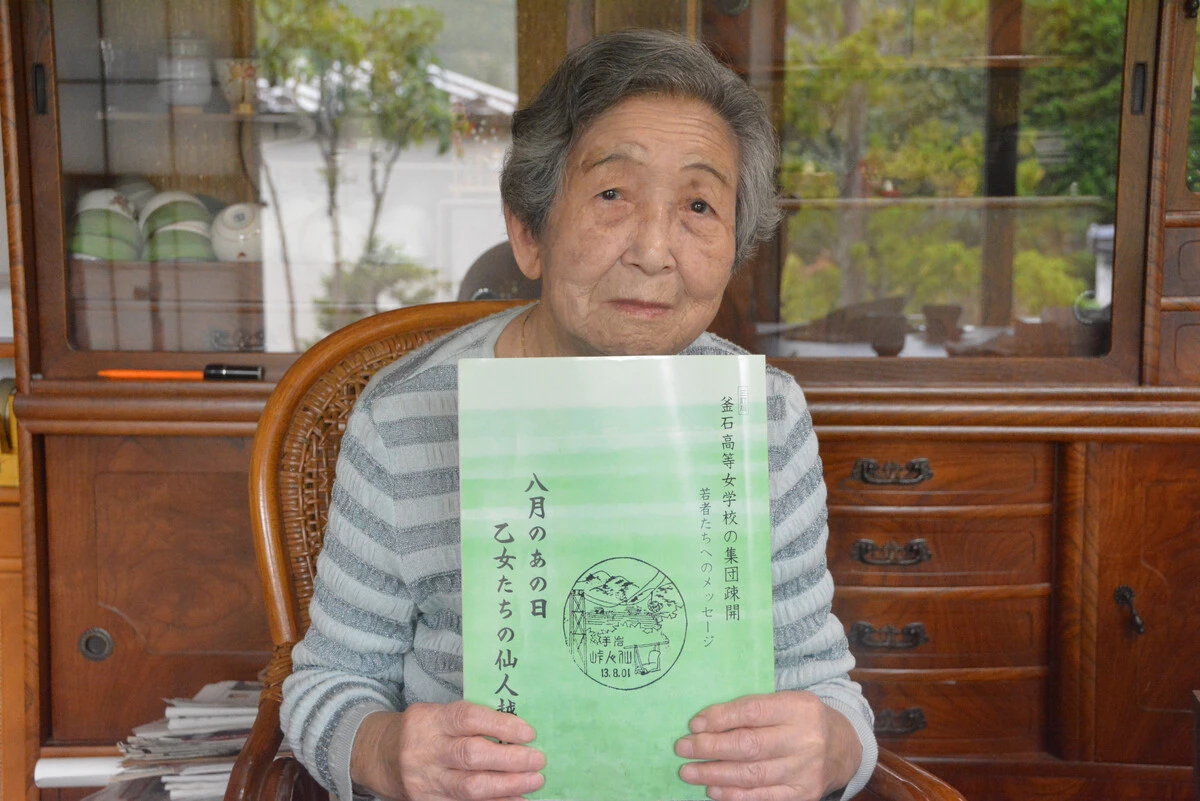 釜石高等女学校の集団疎開
若者たちへのメッセージ
八月のあの日
乙女たちの仙人越
岩手
仙人峠
13.8.01